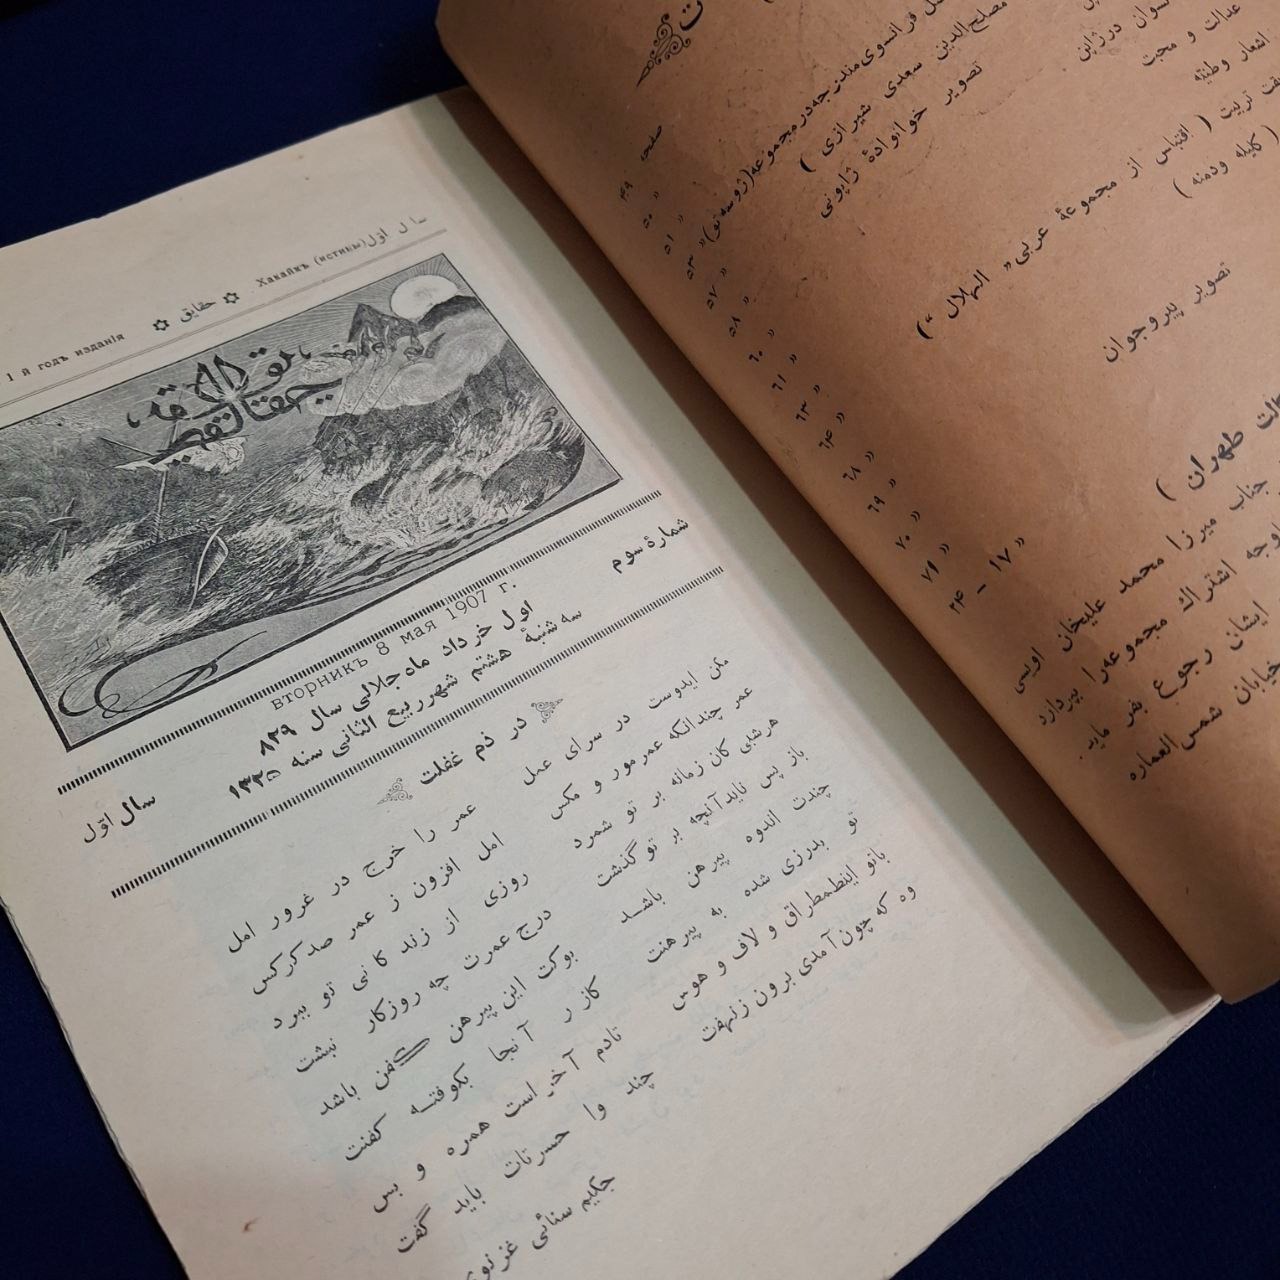 مصلح‌الدین سعدی شیرازی )
تصویر خوانوادهٔ ژاپونی
عدالت و محبت
اشعار وطنیّه
تربیت ( اقتباس از مجموعهٔ عربی « الهلال » )
( کلیله ودمنه )
تصویر پیر وجوان
صفحه ۴۹
» ۵۰
» ۵۱
» ۵۳
» ۵۷
» ۵۸
» ۶۰
» ۶۱
» ۶۳
» ۶۴
» ۶۸
» ۶۹
» ۷۰
» ۷۹
» ۱۷ — ۲۴
طهران )
جناب میرزا محمد علیخان اویسی
وجه اشتراك مجموعه‌را بپردازد
ایشان رجوع بفرماید
خیابان شمس‌العماره
1 й годъ изданія ✡ حقایق ✡ Хакаикъ (истины) سال اوّل
شمارهٔ سوم
вторникъ 8 мая 1907 г.
اول خرداد ماه جلالی سال ۸۲۹
سه شنبهٔ هشتم شهر ربیع الثانی سنه ۱۳۲۵
سال اوّل
در ذم غفلت
مکن ایدوست در سرای عمل
عمر را خرج در غرور امل
عمر چندانکه عمر مور و مکس
امل افزون ز عمر صد کرکس
هرشبی کان زمانه بر تو شمرد
روزی از زند کانی تو ببرد
باز پس نایدآنچه بر تو گذشت
درج عمرت چه روزکار نبشت
چندت اندوه پیرهن باشد
بوکت این پیرهن کفن باشد
تو بدرزی شده به پیرهنت
کازر آنجا بکوفته کفنت
باتو اینطمطراق و لاف و هوس
تادم آخر است همره و بس
وه که چون آمدی برون زنهفت
چند وا حسرتات باید گفت
حکیم سنائی غزنوی